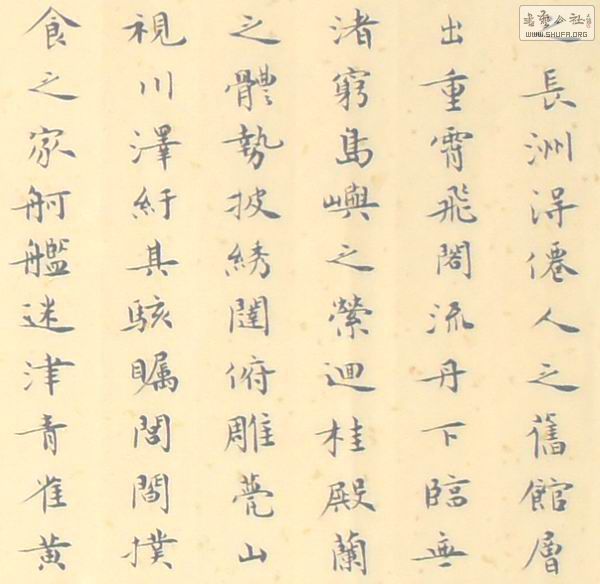 之長洲得僊人之舊館層
出重霄飛閣流丹下臨無
渚窮島嶼之縈迴桂殿蘭
之體勢披綉闥俯雕甍山
視川澤紆其駭矚閭閻撲
食之家舸艦迷津青雀黃
WWW.SHUFA.ORG